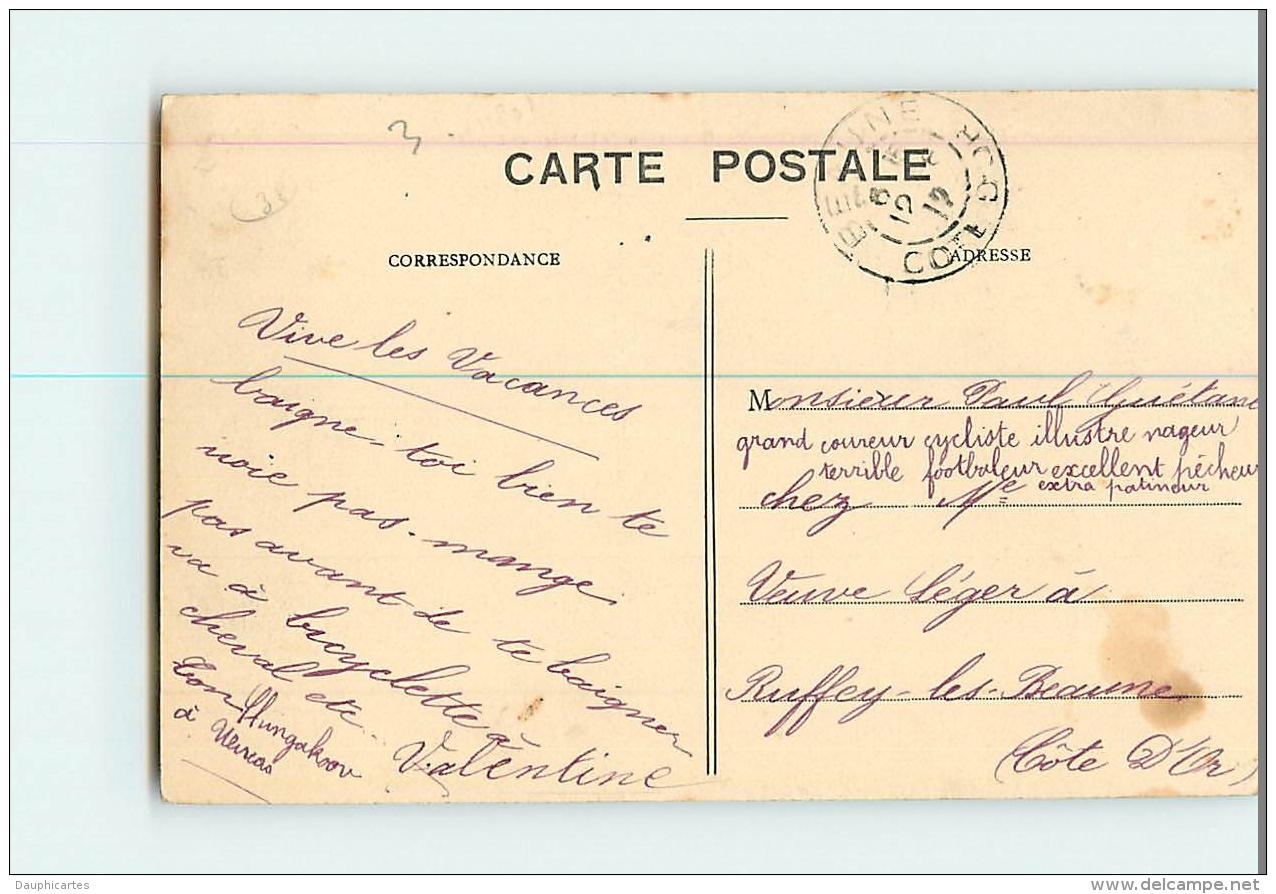 CARTE POSTALE
BEAUNE
COTE D'OR
CORRESPONDANCE
Vive les Vacances
baigne-toi bien te
noie pas. mange
pas avant de te baigner
va à bicyclette à
cheval etc..
Ton
à
Valentine
ADRESSE
Monsieur Paul Guétan
grand coureur cycliste illustre nageur
terrible footbaleur excellent pêcheur
extra patineur
chez Me
Veuve Léger à
Ruffey-les-Beaune
(Côte D'Or)
Dauphicartes
www.delcampe.net